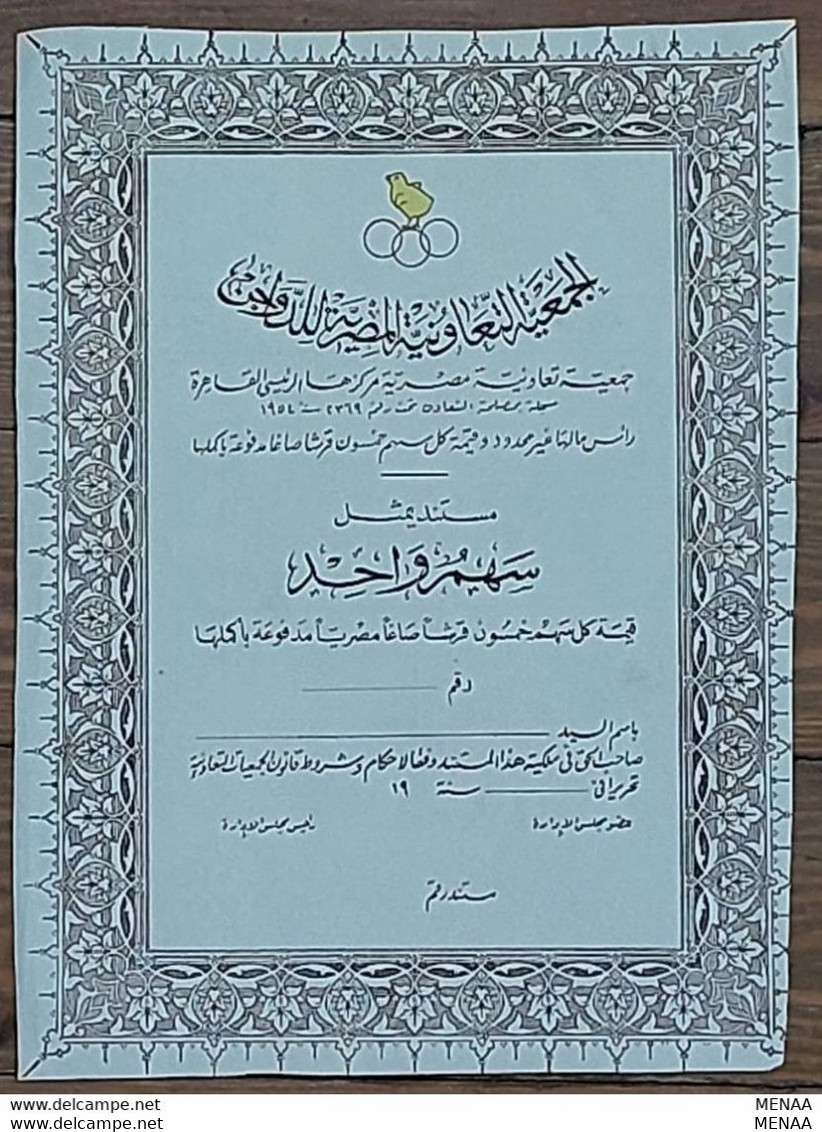 الجمعية التعاونية المصرية للدواجن
جمعية تعاونية مصرية مركزها الرئيسى القاهرة
مسجلة بمصلحة التعاون تحت رقم ٢٣٦٩ سنة ١٩٥٤
رأس مالها غير محدود وقيمة كل سهم خمسون قرشا صاغا مدفوعة بأكملها
مستند يمثل
سَهْمٌ وَاحِد
قيمة كل سهم خمسون قرشاً صاغاً مصرياً مدفوعة بأكملها
رقم
باسم السيد
صاحب الحق فى ملكية هذا المستند وفقا لأحكام وشروط قانون الجمعيات التعاونية
تحريرا فى سنة ١٩
عضو مجلس الإدارة رئيس مجلس الإدارة
مستند رقم
www.delcampe.net MENAA
www.delcampe.net MENAA